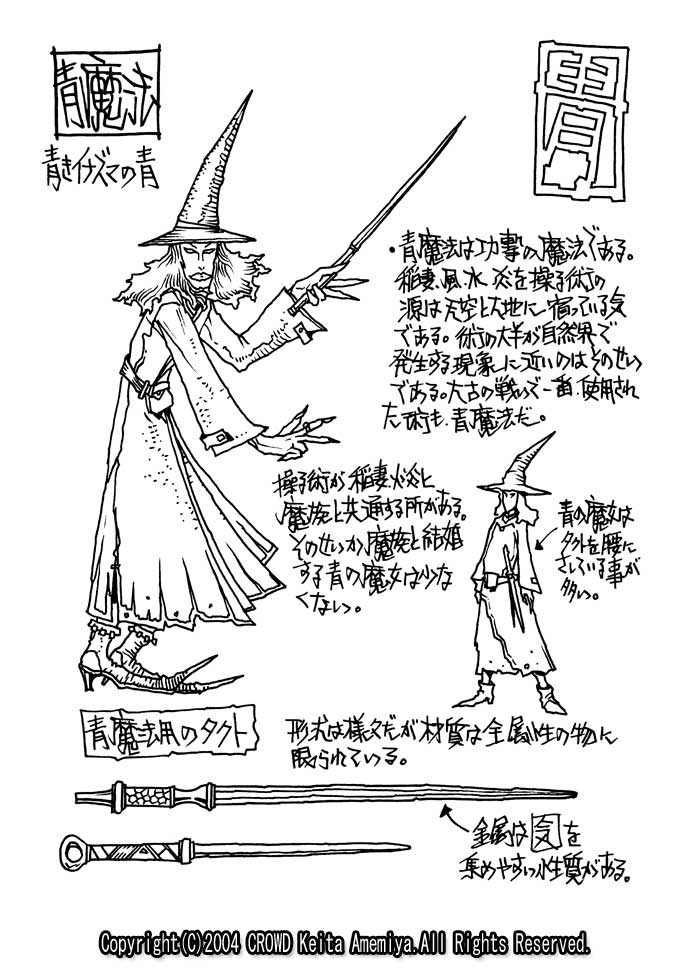 青魔法
青きイナズマの青
青
・青魔法は功撃の魔法である。
稲妻、風、水、炎を操る術の
源は天空と大地に宿っている気
である。術の大半が自然界で
発生する現象に近いのはそのせい
である。太古の戦いで一番使用され
た術も、青魔法だ。
操る術が稲妻、火炎と
魔族と共通する所がある。
そのせいか魔族と結婚
する青の魔女は少な
くない。
青の魔女は
タクトを腰に
さしている事が
多い。
青魔法用のタクト
形式は様々だが材質は金属性の物に
限られている。
金属は気を
集めやすい性質がある。
Copyright(C)2004 CROWD Keita Amemiya.All Rights Reserved.